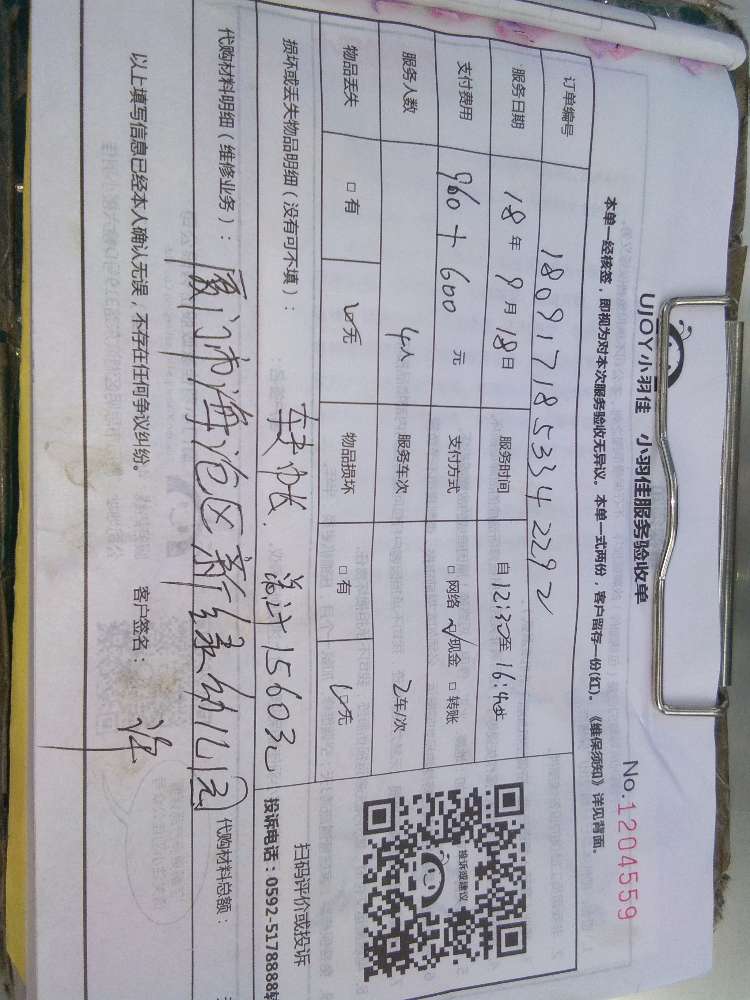 UJOY小羽佳 小羽佳服务验收单
No.1204559
本单一经核签，即视为对本次服务验收无异议。本单一式两份，客户留存一份(红)。《维保须知》详见背面。
订单编号 1809171853342292
服务日期 18年9月18日 服务时间 自12:30至16:40
支付费用 960+600 元 支付方式 □网络 ☑现金 □转账
服务人数 4人 服务车次 2车/次
物品丢失 □有 ☑无 物品损坏 □有 ☑无
投诉或建议
扫码评价或投诉
投诉电话：0592-5178888转
损坏或丢失物品明细（没有可不填）： 转帐 总计1560元
代购材料明细（维修业务）： 厦门市海沧区新绿幼儿园 代购材料总额：
以上填写信息已经本人确认无误，不存在任何争议纠纷。 客户签名：